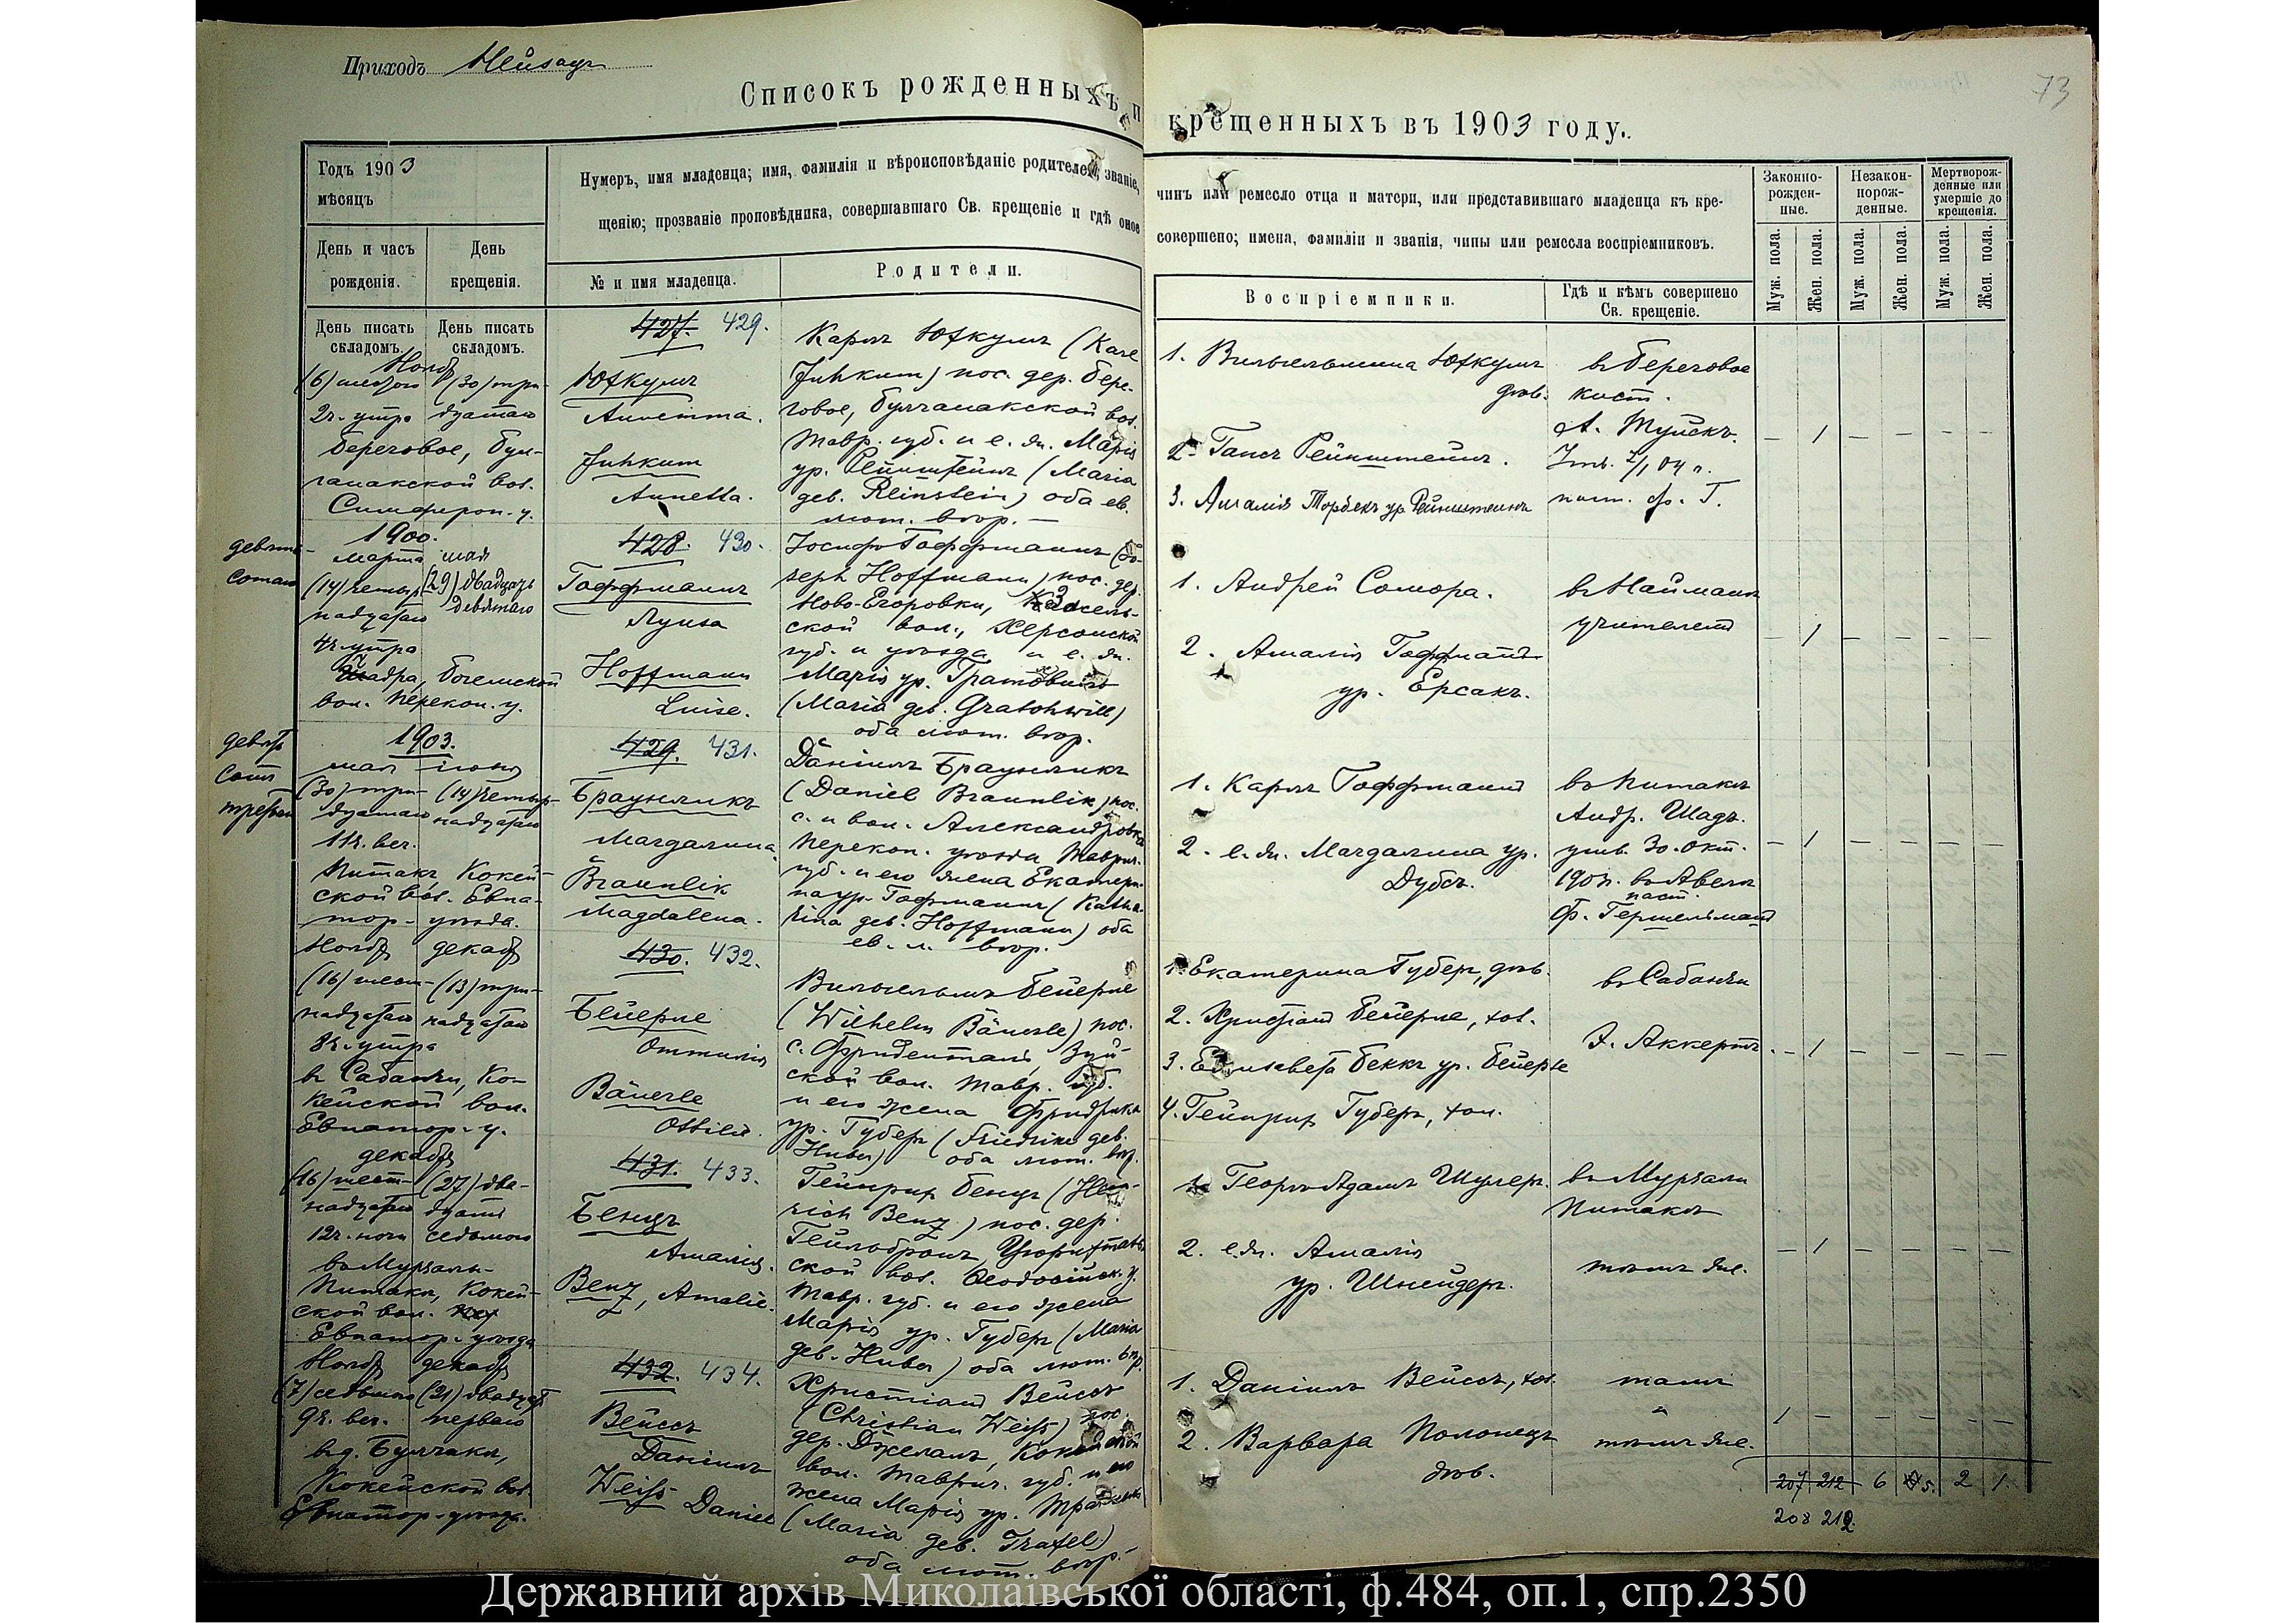 Приходъ Нейзацъ
Списокъ рожденныхъ и
крещенныхъ въ 1903 году.
73
Годъ 1903
мѣсяцъ
День и часъ рожденія.
День крещенія.
Нумеръ, имя младенца; имя, фамилія и вѣроисповѣданіе родителей, званіе,
щенію; прозваніе проповѣдника, совершавшаго Св. крещеніе и гдѣ оное
чинъ или ремесло отца и матери, или представившаго младенца къ кре-
совершено; имена, фамиліи и званія, чины или ремесла воспріемниковъ.
№ и имя младенца.
Родители.
Воспріемники.
Гдѣ и кѣмъ совершено
Св. крещеніе.
Законно-
рожден-
ные.
Незакон-
норож-
денные.
Мертворож-
денные или
умершіе до
крещенія.
Муж. пола.
Жен. пола.
Муж. пола.
Жен. пола.
Муж. пола.
Жен. пола.
День писать
складомъ.
День писать
складомъ.
Нояб
(6) шестого
2ч. утра
Береговое, Бул-
ганакской вол.
Симфероп. у.
(30) три-
дцатаго
427. 429.
Юткумъ
Аннетта.
Juhkum
Annetta.
Карлъ Юткумъ (Karl
Juhkum) пос. дер. Бере-
говое, Булганакской вол.
Тавр. губ. и е. ж. Марія
ур. Рейнштейнъ (Maria
geb. Reinstein) оба ев.
лют. вѣр.
1. Вильгельмина Юткумъ
дѣв.
2. Гансъ Рейнштейнъ.
3. Амалія Торбекъ ур. Рейнштейнъ
въ Береговое
кист.
А. Туйскъ.
пост. ф. Г.
– 1 – – – –
девять-
сотаго
1900.
марта
(14) четыр
надцатаго
4ч. утра
Чадра, Богемской
вол. Перекоп. у.
мая
(29) двадцать
девятаго
428. 430.
Гоффманнъ
Луиза
Hoffmann
Luise.
Іосифъ Гоффманнъ (Jo-
seph Hoffmann) пос. дер.
Ново-Егоровки,
ской вол., Херсонской
губ. и уѣзда и е. ж.
Марія ур.
(Maria geb. Gratohwill)
оба лют. вѣр.
1. Андрей Сомора.
2. Амалія Гоффманъ
ур. Ерсакъ.
въ Найманъ
учителемъ
– 1 – – – –
девять
сотъ
третьяго
1903.
мая
(30) три-
дцатаго
11ч. веч.
Китакъ Кокей-
ской вол. Евпа-
тор. уѣзда.
іюня
(14) четыр-
надцатаго
429. 431.
Браунликъ
Магдалина
Braunlik
Magdalena.
Даніилъ Браунликъ
(Daniel Braunlik) пос.
с. и вол. Александровка
Перекоп. уѣзда Таврич.
губ. и его жена Екатери-
на ур. Гофманнъ (Katha-
rina geb. Hoffmann) оба
ев. л. вѣр.
1. Карлъ Гоффманъ
2. е. ж. Магдалина ур.
Дубсъ.
въ Китакъ
Андр. Шадъ.
утв. 30. Окт.
паст.
– 1 – – – –
Нояб
(16) шест-
надцатаго
8ч. утра
въ Сабанчи, Ко-
кейской вол.
Евпатор. у.
декаб
(13) три-
надцатаго
430. 432.
Бейерле
Оттилія
Bäuerle
Ottilie.
Вильгельмъ Бейерле
(Wilhelm Bäuerle) пос.
с. Фриденталь, Зуй-
ской вол. Тавр. губ.
и его жена Фридрика
ур. Губеръ (Friedrike geb.
Huber) оба лют. вѣр.
1. Екатерина Губеръ, дѣв.
2. Христіанъ Бейерле, хол.
3. Елисавета Беккъ ур. Бейерле
4. Гейнрихъ Губеръ, хол.
въ Сабанчи
Э. Аккертъ.
– 1 – – – –
декаб
(16) шест-
надцатаго
12ч. ночи
въ Мурзали-
Китаки, Кокей-
ской вол.
Евпатор. уѣзда
(27) два-
дцать
седьмого
431. 433.
Бенцъ
Амалія.
Benz, Amalie.
Гейнрихъ Бенцъ (Hein-
rich Benz) пос. дер.
Гейльбронъ, Цюрихталь-
ской вол. Ѳеодосійск. у.
Тавр. губ. и его жена
Марія ур. Губеръ (Maria
geb. Huber) оба лют. вѣр.
1. Георгъ Адамъ Шулеръ.
2. е. ж. Амалія
ур. Шнейдеръ.
въ Мурзали
Китакъ
тѣмъ же.
– 1 – – – –
Нояб
(7) седьмого
9ч. веч.
въ д. Булчаки,
Кокейской вол.
Евпатор. уѣзда.
декаб
(21) двадцать
перваго
432. 434.
Вейссъ
Даніилъ
Weiß
Daniel
Христіанъ Вейссъ
(Christian Weiß) пос.
дер. Джелалъ, Кокейской
вол. Таврич. губ. и его
жена Марія ур.
(Maria geb. Traxel)
оба лют. вѣр.
1. Даніилъ Вейссъ, хол.
2. Варвара Полонецъ
дѣв.
тамъ
тѣмъ же.
1 – – – – –
207 212 6 5. 2 1.
208 212
Державний архів Миколаївської області, ф.484, оп.1, спр.2350